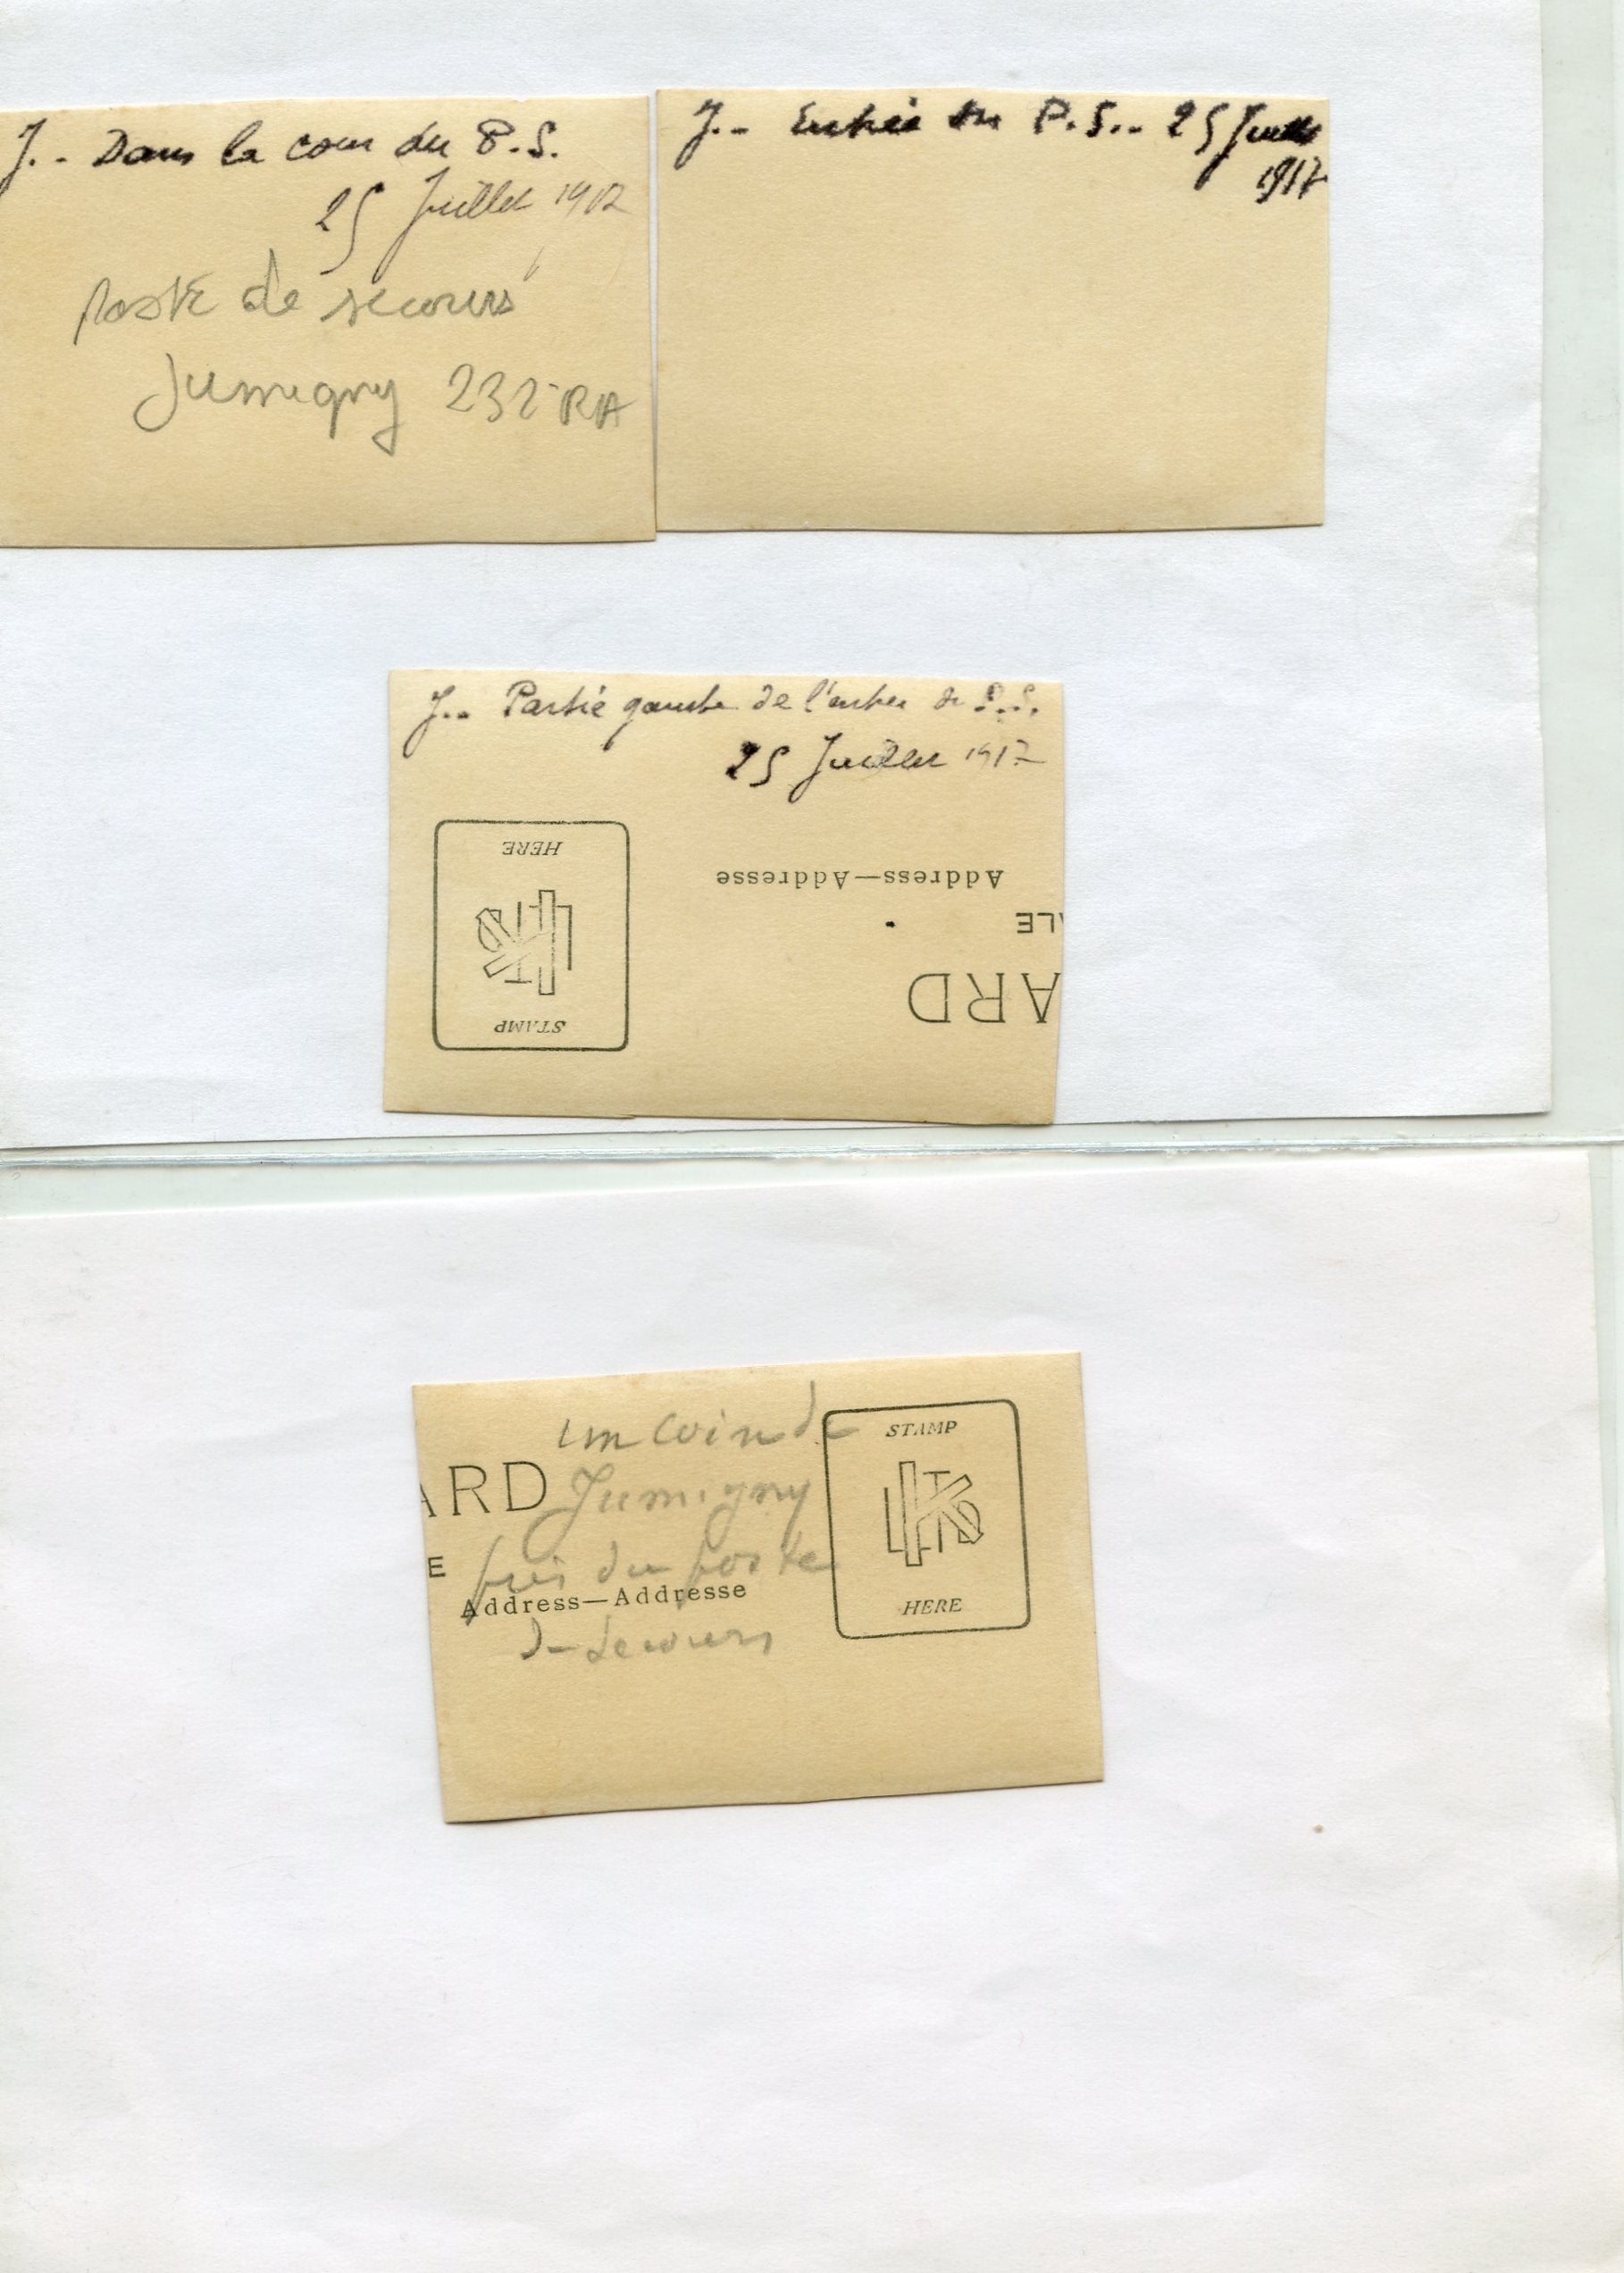 J.- Dans la cour du P.S.
25 Juillet 1917
Poste de secours
Jumigny 232 RA
J.- Entrée du P.S.- 25 Juillet
1917
J.- Partie gauche de l'entrée du P.S.
25 Juillet 1917
HERE
STAMP
Address—Addresse
LE
ARD
un coin de
Jumigny
près du poste
de secours
ARD
E
Address—Addresse
STAMP
HERE